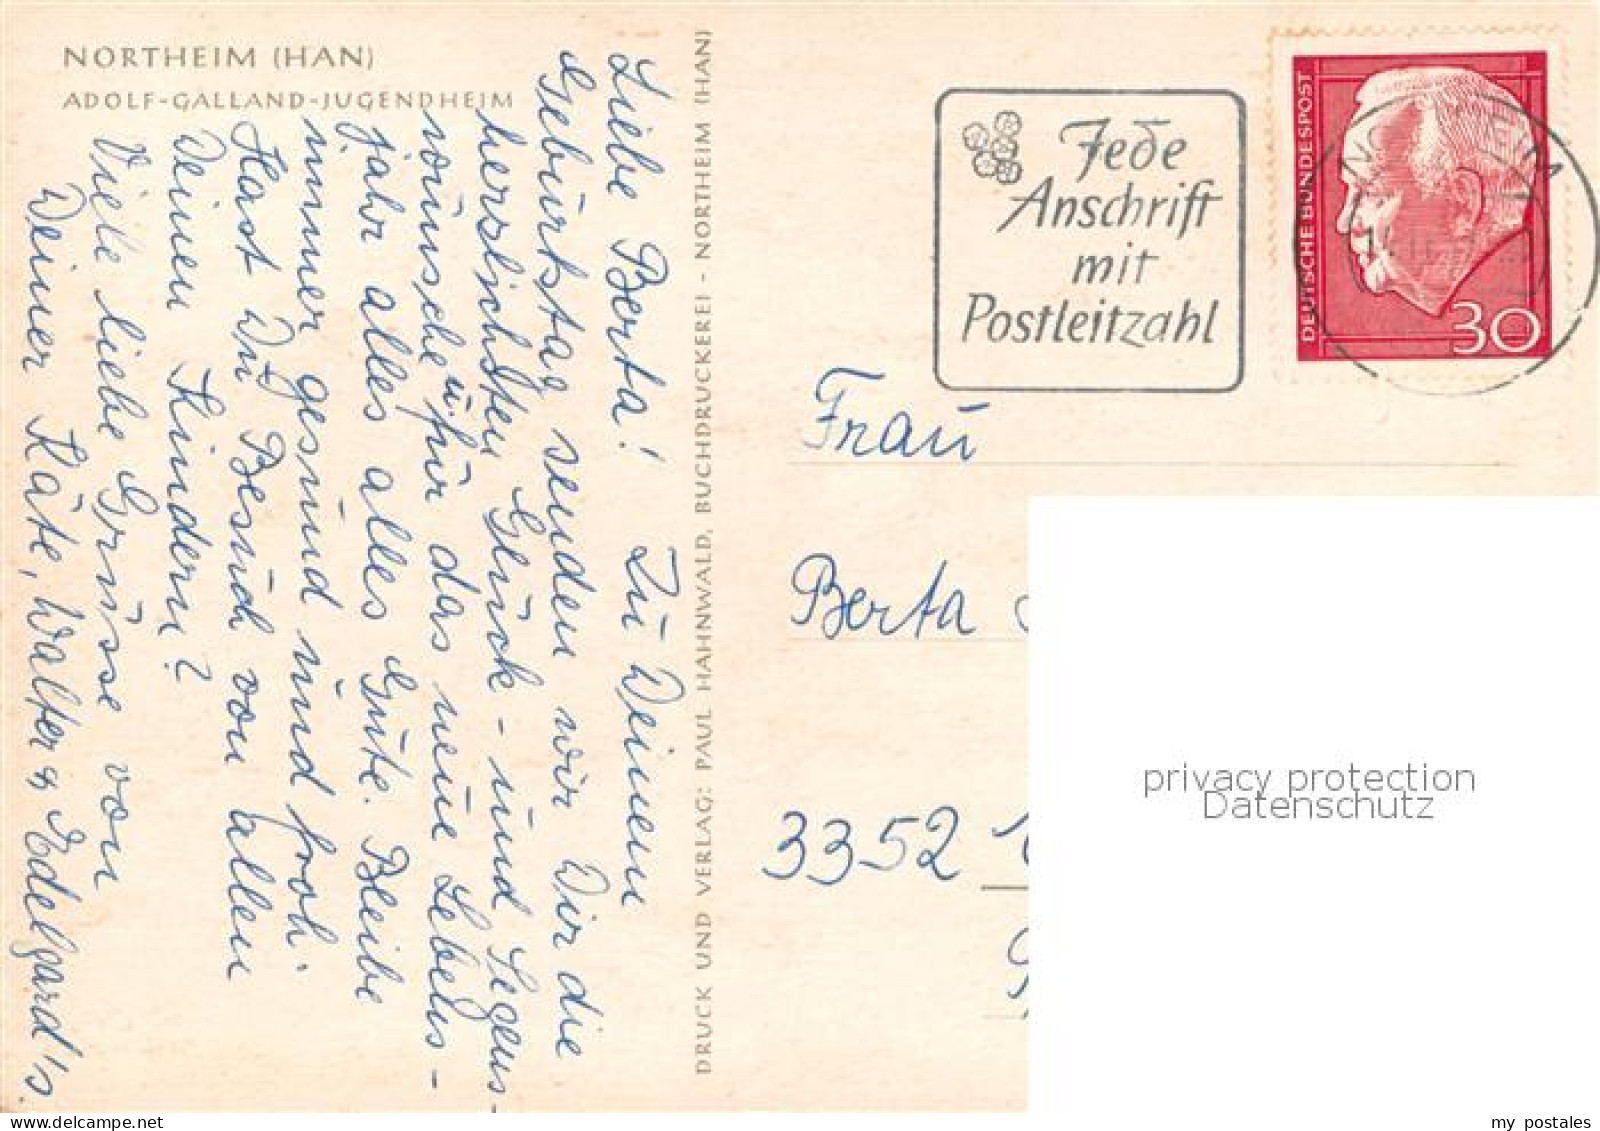 NORTHEIM (HAN)
ADOLF-GALLAND-JUGENDHEIM
Liebe Berta! Zu Deinem
Geburtstag senden wir Dir die
herzlichsten Glück- und Segens-
wünsche u. für das neue Lebens-
jahr alles alles Gute. Bleibe
immer gesund und froh.
Hast Du Besuch von allen
Deinen Kindern?
Viele liebe Grüsse von
Deiner Käte, Walter & Edelgard's.
DRUCK UND VERLAG: PAUL HAHNWALD, BUCHDRUCKEREI - NORTHEIM (HAN)
Jede
Anschrift
mit
Postleitzahl
DEUTSCHE BUNDESPOST
30
Frau
Berta
3352
privacy protection
Datenschutz
my postales